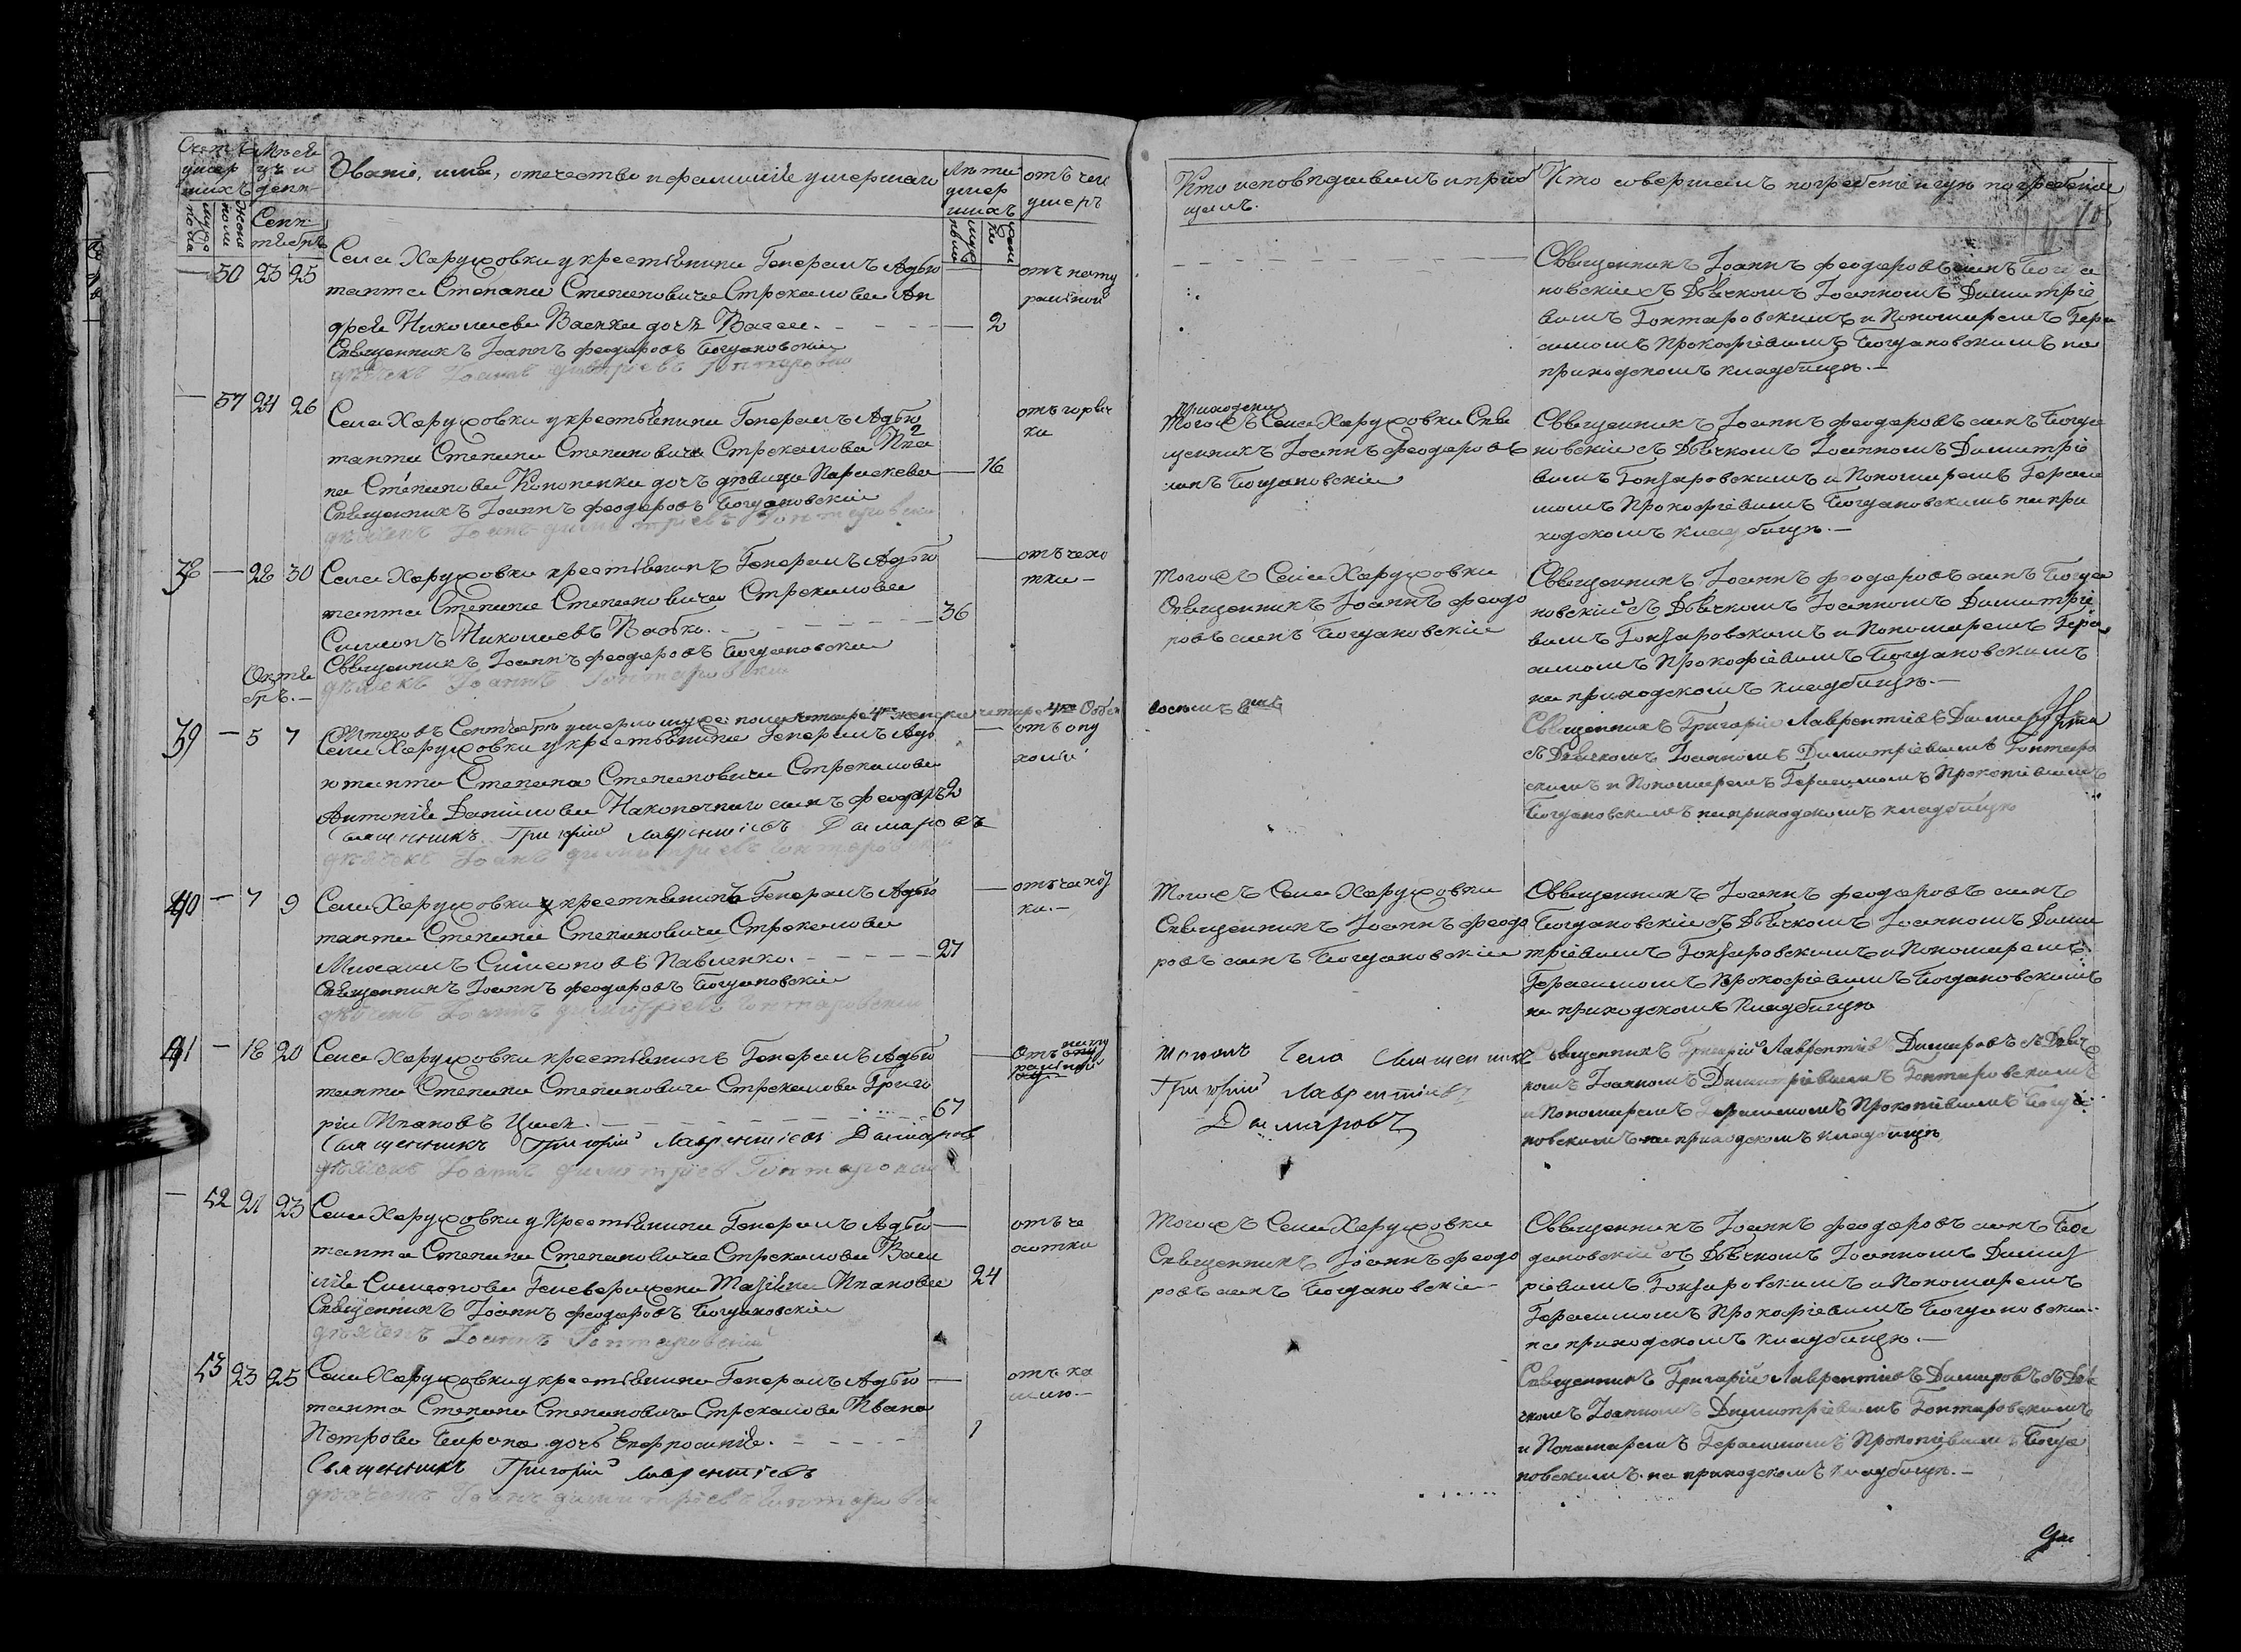 Счетъ умер шихъ
Мѣся цъ и день
Званіе, имя, отечество и фамилія умершаго
Лѣта умер шихъ
отъ чего умеръ
муже пола
жена пола
Сен тябрь
— 50 23 25
Села Харуховки у крестьянина Генералъ Адъю
танта Степана Степановича Стрекалова Ан
дрея Николаева Васки дочь Васса. — 2
отъ нату ральной
Священникъ Іоаннъ Феодоровъ Богдановскій
дьячекъ Іоаннъ Димитріевъ Гонтаровскій
— 51 24 26
Села Харуховки у крестьянина Генералъ Адъю
танта Степана Степановича Стрекалова Ива
на Степанова Кононенка дочь дѣвица Параскева — 16
отъ горяч ки
Священникъ Іоаннъ Феодоровъ Богдановскій
дьячекъ Іоаннъ Димитріевъ Гонтаровскій
38 — 28 30
Села Харуховки крестьянинъ Генералъ Адъю
танта Степана Степановича Стрекалова
Симеонъ Николаевъ Бабко. 36
отъ чахо тки —
Священникъ Іоаннъ Феодоровъ Богдановскій
дьячекъ Іоаннъ Гонтаровскій
Октя брь. —
Итого въ Сентябрѣ умерло муже: пола четыре 4ре женска четыре 4ре Обоего
39 — 5 7
Села Харуховки у крестьянина Генералъ Адъ
ютанта Степана Степановича Стрекалова
Антонія Данилова Наконечнаго сынъ Феодоръ 2
отъ опу холи
Священникъ Григорій Лаврентіевъ Дамаровъ
дьячекъ Іоаннъ Димитріевъ Гонтаровскій
40 — 7 9
Села Харуховки крестьянинъ Генералъ Адъю
танта Степана Степановича Стрекалова
Михаилъ Симеоновъ Павленко. 27
отъ чахот ки. —
Священникъ Іоаннъ Феодоровъ Богдановскій
дьячекъ Іоаннъ Димитріевъ Гонтаровскій
41 — 18 20
Села Харуховки крестьянинъ Генералъ Адъю
танта Степана Степановича Стрекалова Григо
рій Ивановъ 67
отъ нату ральной
Священникъ Григорій Лаврентіевъ Дамаровъ
дьячекъ Іоаннъ Димитріевъ Гонтаровскій
— 52 21 23
Села Харуховки у Крестьянина Генералъ Адъю
танта Степана Степановича Стрекалова Васи
лія Симеонова жена Татіяна Иванова 24
отъ ча хотки
Священникъ Іоаннъ Феодоровъ Богдановскій
дьячекъ Іоаннъ Гонтаровскій
53 23 25
Села Харуховки у крестьянина Генералъ Адъю
танта Степана Степановича Стрекалова Ивана
Петрова дочь Евфросинія. 1
отъ ка шлю. —
Священникъ Григорій Лаврентіевъ
дьячекъ Іоаннъ Димитріевъ Гонтаровскій
Кто исповѣдывалъ и пріоб щалъ.
Кто совершалъ погребеніе и гдѣ погребены
105
Священникъ Іоаннъ Феодоровъ сынъ Богда
новскій съ Дьячкомъ Іоанномъ Димитріе
вымъ Гонтаровскимъ и Пономаремъ Гера
симомъ Прокофіевымъ Богдановскимъ на
приходскомъ кладбищѣ. —
приходскій
Тогожъ Села Харуховки Свя
щенникъ Іоаннъ Феодоровъ
сынъ Богдановскій
Священникъ Іоаннъ Феодоровъ сынъ Богда
новскій съ Дьячкомъ Іоанномъ Димитріе
вымъ Гонтаровскимъ и Пономаремъ Гераси
момъ Прокофіевымъ Богдановскимъ на при
ходскомъ кладбищѣ. —
Тогожъ Села Харуховки
Священникъ Іоаннъ Феодо
ровъ сынъ Богдановскій
Священникъ Іоаннъ Феодоровъ сынъ Богда
новскій съ Дьячкомъ Іоанномъ Димитріе
вымъ Гонтаровскимъ и Пономаремъ Гера
симомъ Прокофіевымъ Богдановскимъ
на приходскомъ кладбищѣ. —
восемь 8мь
Священникъ Григорій Лаврентіевъ Дамаровъ
съ Дьячкомъ Іоанномъ Димитріевымъ Гонтаро
скимъ и Пономаремъ Герасимомъ Прокопіевымъ
Богдановскимъ на приходскомъ кладбищѣ
Тогожъ Села Харуховки
Священникъ Іоаннъ Феодо
ровъ сынъ Богдановскій
Священникъ Іоаннъ Феодоровъ сынъ
Богдановскій съ Дьячкомъ Іоанномъ Дими
тріевымъ Гонтаровскимъ и Пономаремъ
Герасимомъ Прокофіевымъ Богдановскимъ
на приходскомъ кладбищѣ
Тогожъ Села Священникъ
Григорій Лаврентіевъ
Дамаровъ
Священникъ Григорій Лаврентіевъ Дамаровъ съ Дьяч
комъ Іоанномъ Димитріевымъ Гонтаровскимъ
и Пономаремъ Герасимомъ Прокопіевымъ Богда
новскимъ на приходскомъ кладбищѣ
Тогожъ Села Харуховки
Священникъ Іоаннъ Феодо
ровъ сынъ Богдановскій
Священникъ Іоаннъ Феодоровъ сынъ Бог
дановскій съ Дьячкомъ Іоанномъ Димит
ріевымъ Гонтаровскимъ и Пономаремъ
Герасимомъ Прокофіевымъ Богдановским
на приходскомъ кладбищѣ. —
Священникъ Григорій Лаврентіевъ Дамаровъ съ Дья
чкомъ Іоанномъ Димитріевымъ Гонтаровскимъ
и Пономаремъ Герасимомъ Прокопіевымъ Богда
новскимъ на приходскомъ кладбищѣ. —